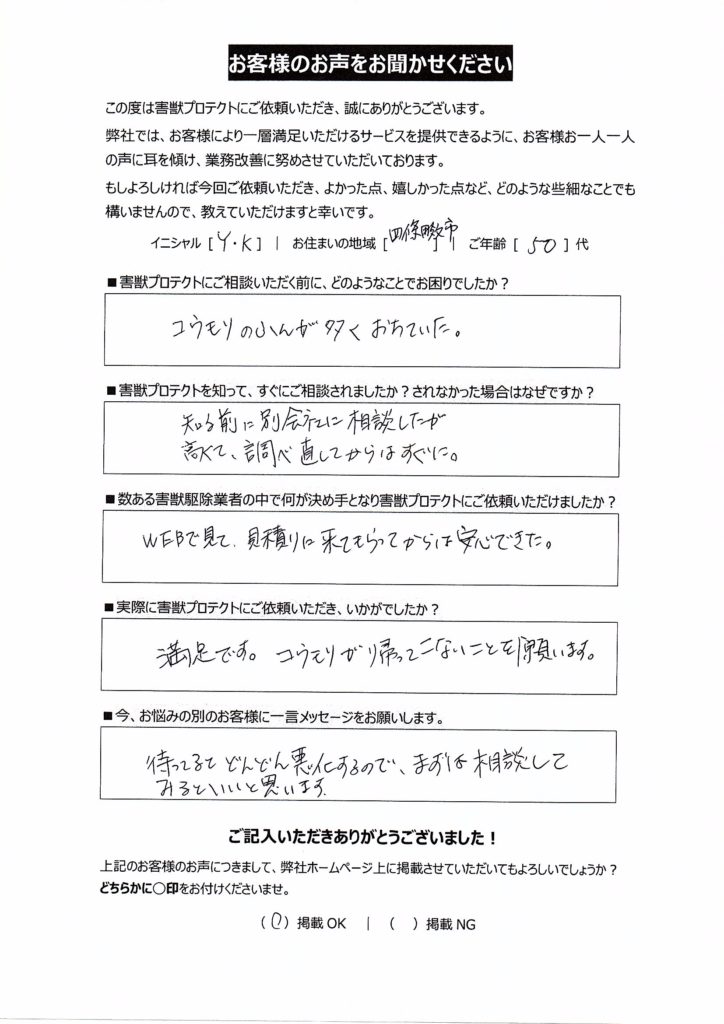 お客様のお声をお聞かせください
この度は害獣プロテクトにご依頼いただき、誠にありがとうございます。
弊社では、お客様により一層満足いただけるサービスを提供できるように、お客様お一人一人
の声に耳を傾け、業務改善に努めさせていただいております。
もしよろしければ今回ご依頼いただき、よかった点、嬉しかった点など、どのような些細なことでも
構いませんので、教えていただけますと幸いです。
イニシャル [ Y・K ] | お住まいの地域 [ 四條畷市 ] | ご年齢 [ 50 ] 代
■害獣プロテクトにご相談いただく前に、どのようなことでお困りでしたか？
コウモリのふんが多くおちていた。
■害獣プロテクトを知って、すぐにご相談されましたか？されなかった場合はなぜですか？
知る前に別会社に相談したが
高くて、調べ直してからはすぐに。
■数ある害獣駆除業者の中で何が決め手となり害獣プロテクトにご依頼いただけましたか？
WEBで見て、見積りに来てもらってからは安心できた。
■実際に害獣プロテクトにご依頼いただき、いかがでしたか？
満足です。コウモリが帰ってこないことを願います。
■今、お悩みの別のお客様に一言メッセージをお願いします。
待ってるとどんどん悪化するので、まずは相談して
みるといいと思います。
ご記入いただきありがとうございました！
上記のお客様のお声につきまして、弊社ホームページ上に掲載させていただいてもよろしいでしょうか？
どちらかに○印をお付けくださいませ。
(○) 掲載 OK | ( ) 掲載 NG